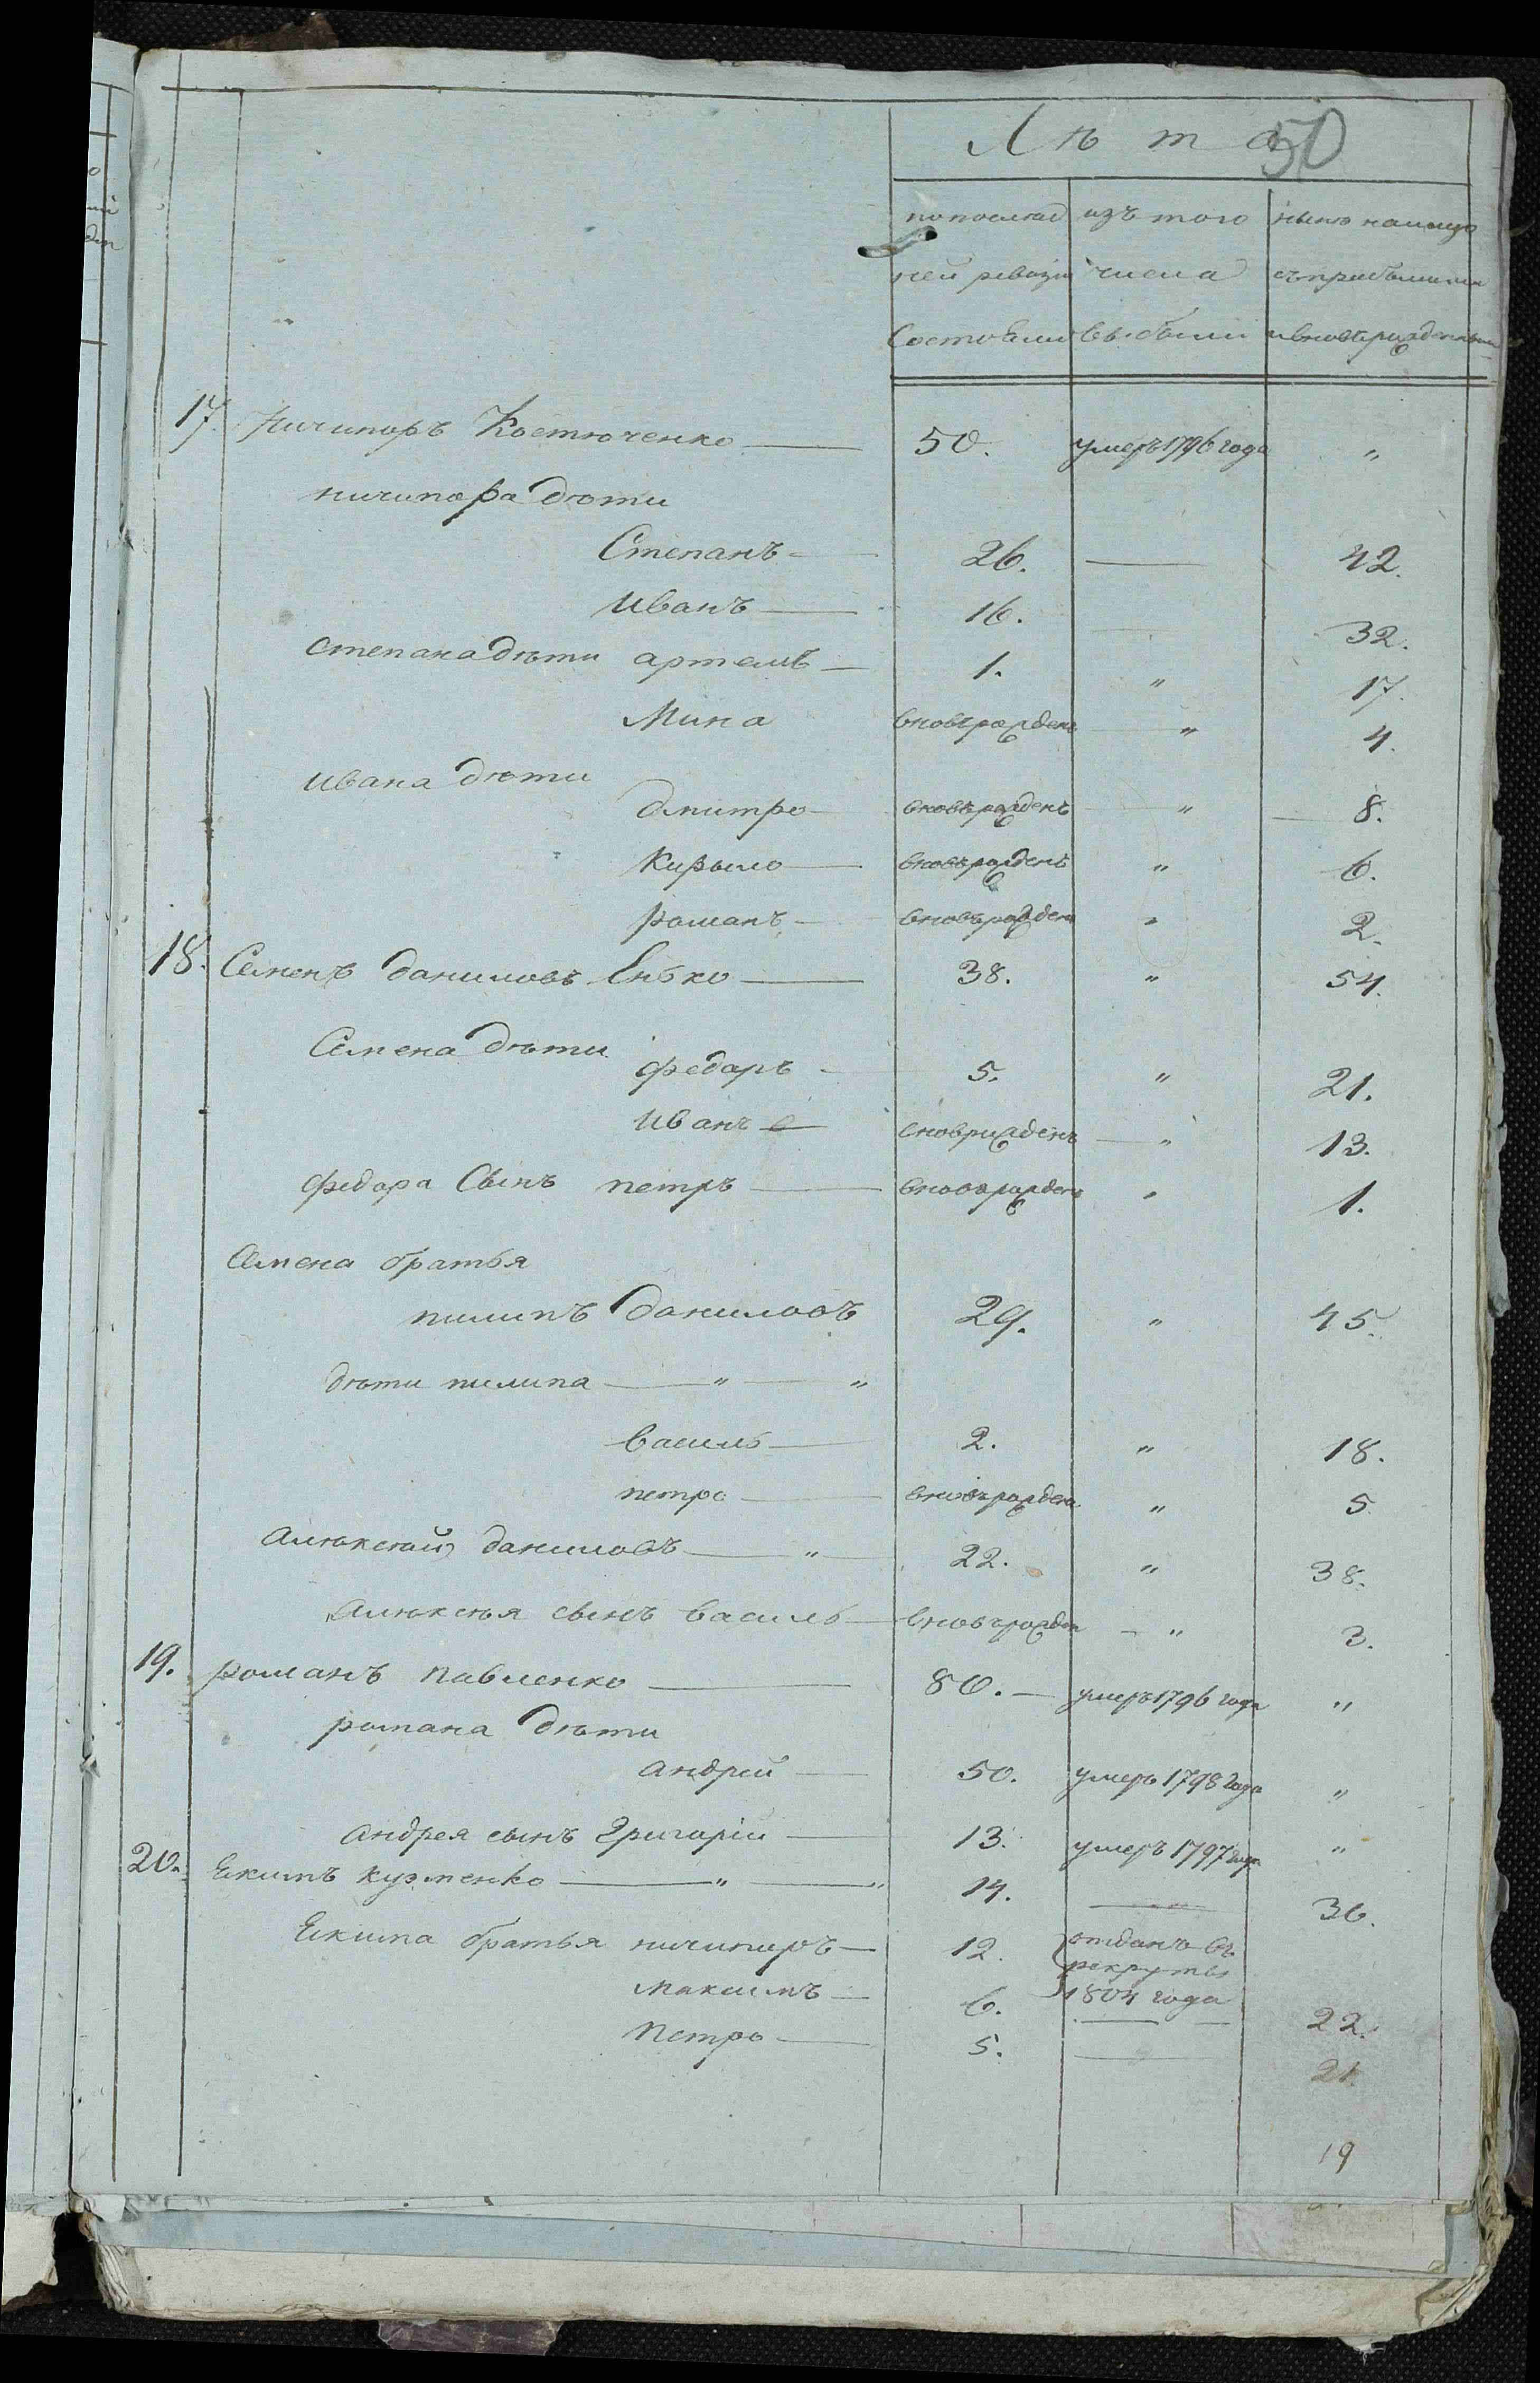 Лѣта
50
по послѣд изъ того нынѣ налицо
ней ревизіи числа съ прибылыми
Состояли выбыли и вновърожденными
17. Ничипоръ Костюченко 50. умеръ 1796 года "
ничипора дѣти
Степанъ 26. 42.
Иванъ 16. 32.
Степана дѣти артемъ 1. " 17.
Мина вновърожденъ " 4.
ивана дѣти
дмитро вновърожденъ " 8.
Кирыло вновърожденъ " 6.
романъ вновърожден " 2.
18. Семенъ даниловъ Енько 38. " 54.
Семена дѣти
федаръ 5. " 21.
Иванъ вноврожденъ " 13.
федора Сынъ петръ вновърожденъ " 1.
Семена братья
пилипъ даниловъ 29. " 45.
дѣти пилипа " "
василь 2. " 18.
петро вновърожден " 5
алѣксѣй даниловъ " 22. " 38.
Алѣксѣя сынъ василь вновърожден " 3.
19. романъ павленко 80. умеръ 1796 года "
романа дѣти
андрей 50. умеръ 1798 года "
андрея сынъ Григорій 13. умеръ 1797 года "
20. Екимъ кузменко " " 14. 30.
Екима братья ничипоръ 12. отданъ въ
рекруты
максимъ 6. 1804 года 22.
Петро 5. 21.
19